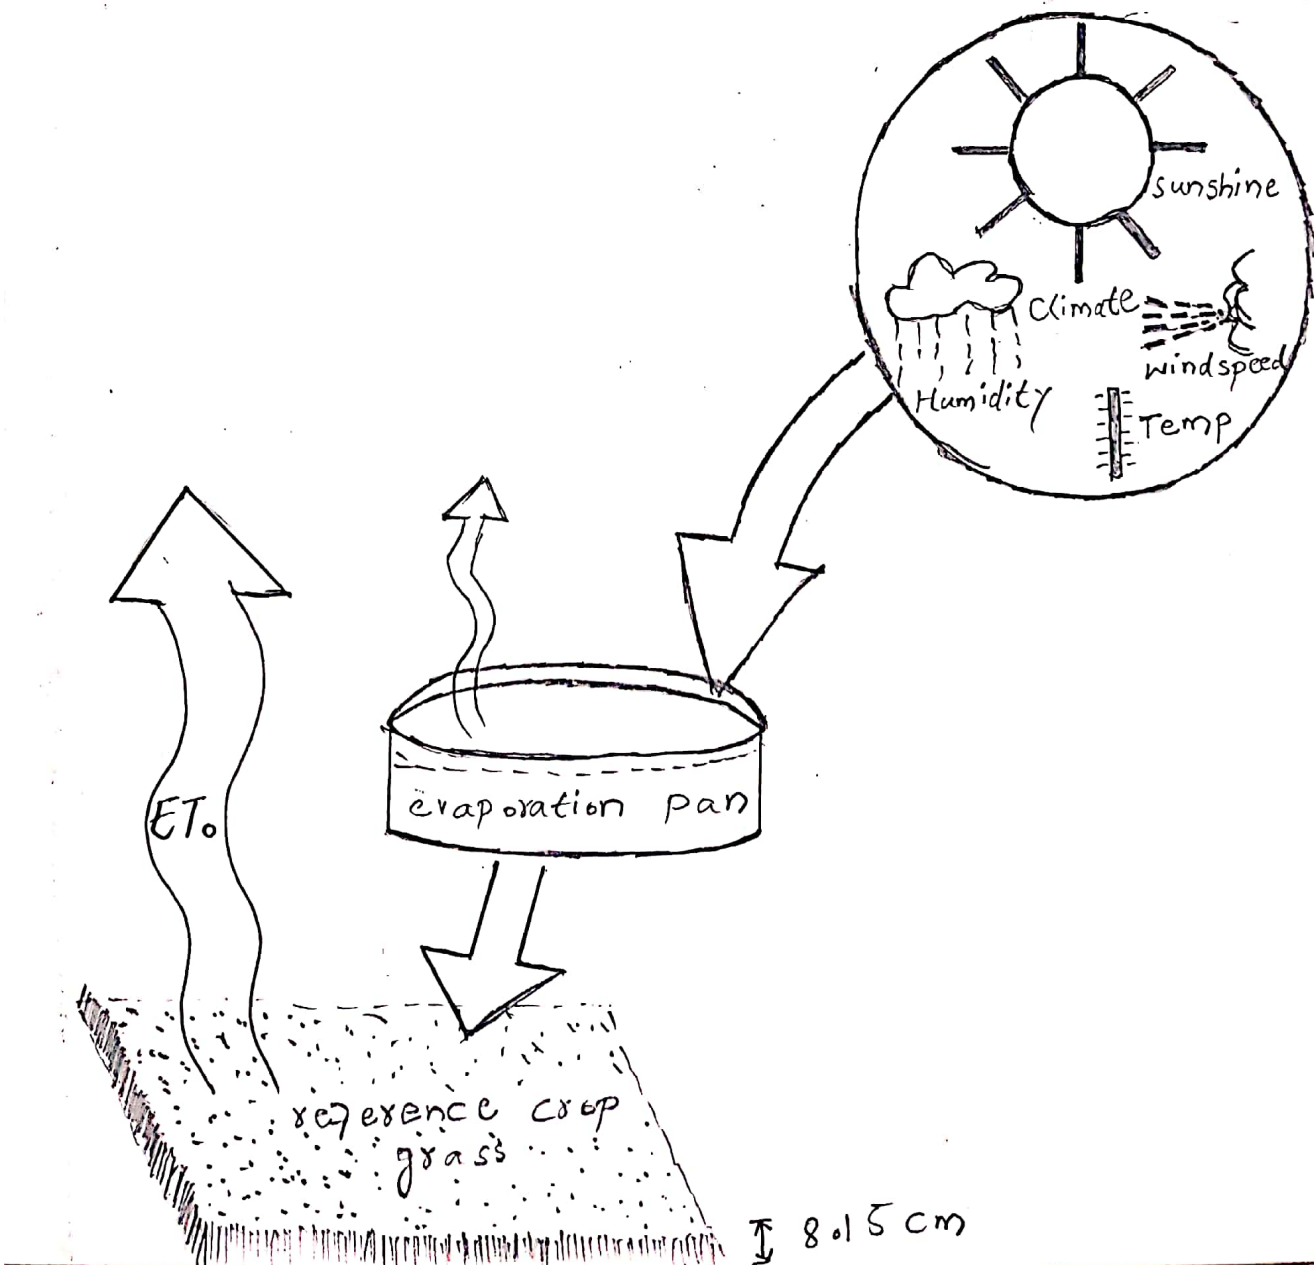 sunshine
Climate
windspeed
Humidity
Temp
ETo
evaporation pan
reference crop
grass
8.15 cm